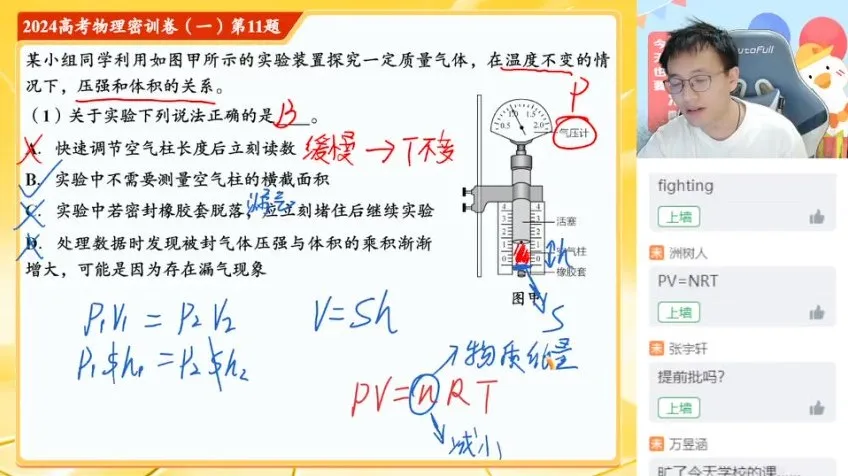 2024高考物理密训卷(一)第11题
某小组同学利用如图甲所示的实验装置探究一定质量气体，在温度不变的情
况下，压强和体积的关系。
(1)关于实验下列说法正确的是 B 。
A. 快速调节空气柱长度后立刻读数 缓慢→T不变
B. 实验中不需要测量空气柱的横截面积
C. 实验中若密封橡胶套脱落，应立刻堵住后继续实验
漏气
D. 处理数据时发现被封气体压强与体积的乘积渐渐
增大，可能是因为存在漏气现象
P
0.5 1.0 1.5 2.0
气压计
4 4
3 3
2 2
1 1
0 0
活塞
空气柱
橡胶套
h
图甲
S
P₁V₁ = P₂V₂
V=Sh
P₁Sh₁ = P₂Sh₂
物质的量
PV=nRT
减小
AutoFull
fighting
上墙
未 洲树人
PV=NRT
上墙
未 张宇轩
提前批吗?
上墙
未 万昱涵
旷了今天学校的课......